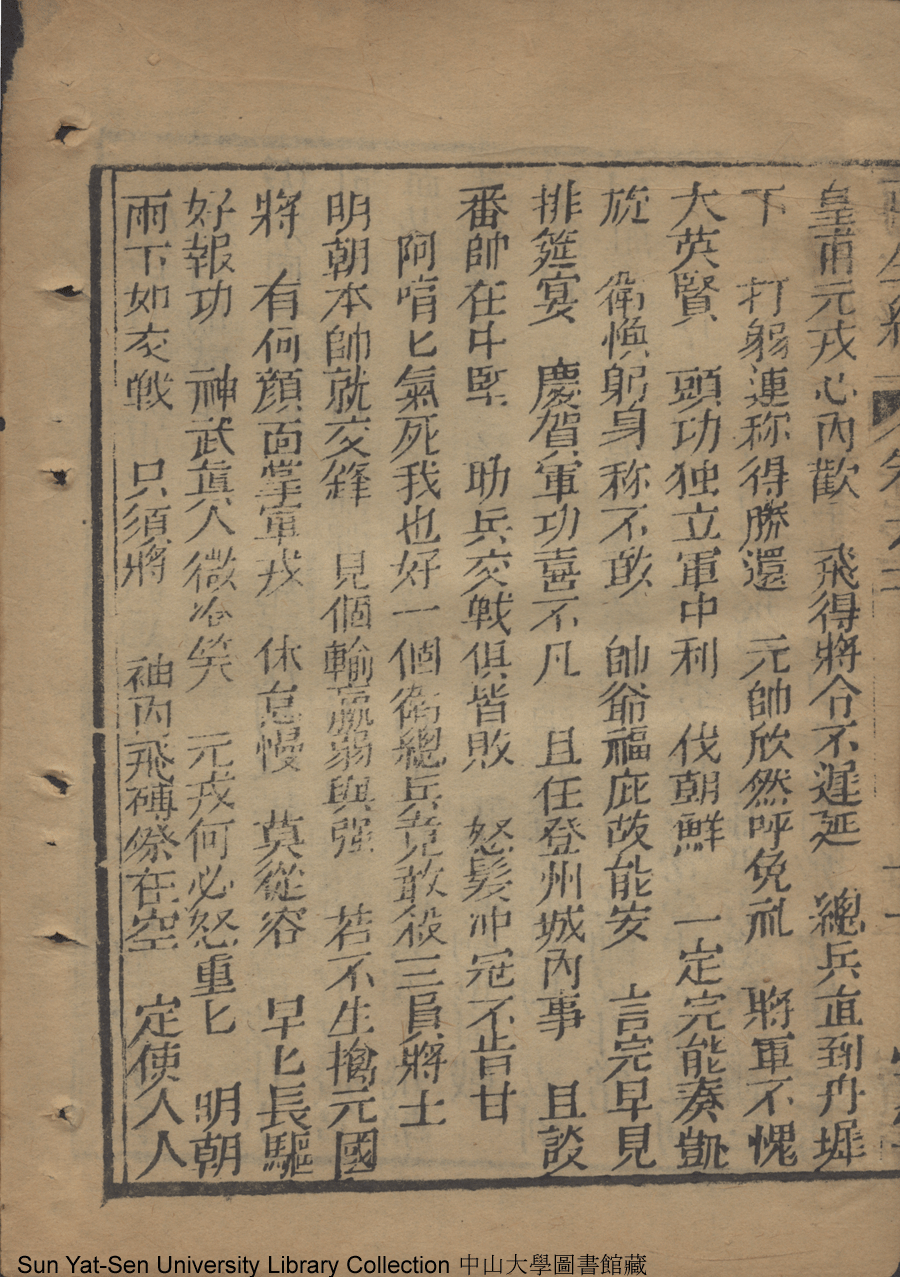 皇甫元戎心內歡　飛得將令不遲延　總兵直到丹墀
下　打躬連称得勝還　元帥欣然呼免礼　將軍不愧
大英賢　頭功独立軍中利　伐朝鮮　一定完能奏凱
旋　衛煥躬身称不敢　帥爺福庇故能安　言完早見
排筵宴　慶賀軍功喜不凡　且任登州城內事　且談
番帥在中堅　助兵交戰俱皆敗　怒髮冲冠不肯甘
阿唷匕氣死我也好一個衛總兵竟敢殺三員將士
明朝本帥就交鋒　見個輸贏弱與强　若不生擒元國
將　有何顔面掌軍戎　休怠慢　莫從容　早匕長驅
好報功　神武真人微冷笑　元戎何必怒重匕　明朝
兩下如交戰　只須將　袖內飛磚祭在空　定使人人
Sun Yat-Sen University Library Collection 中山大學圖書館藏